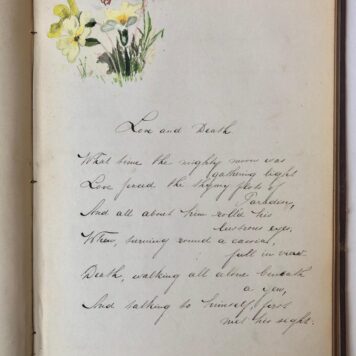 Love and Death
What time the mighty moon was
gathering light
Love paced the thymy plots of
Paradise,
And all about him roll'd his
lustrous eyes,
When, turning round a cassia,
full in view
Death, walking all alone beneath
a yew,
And talking to himself, first
met his sight.